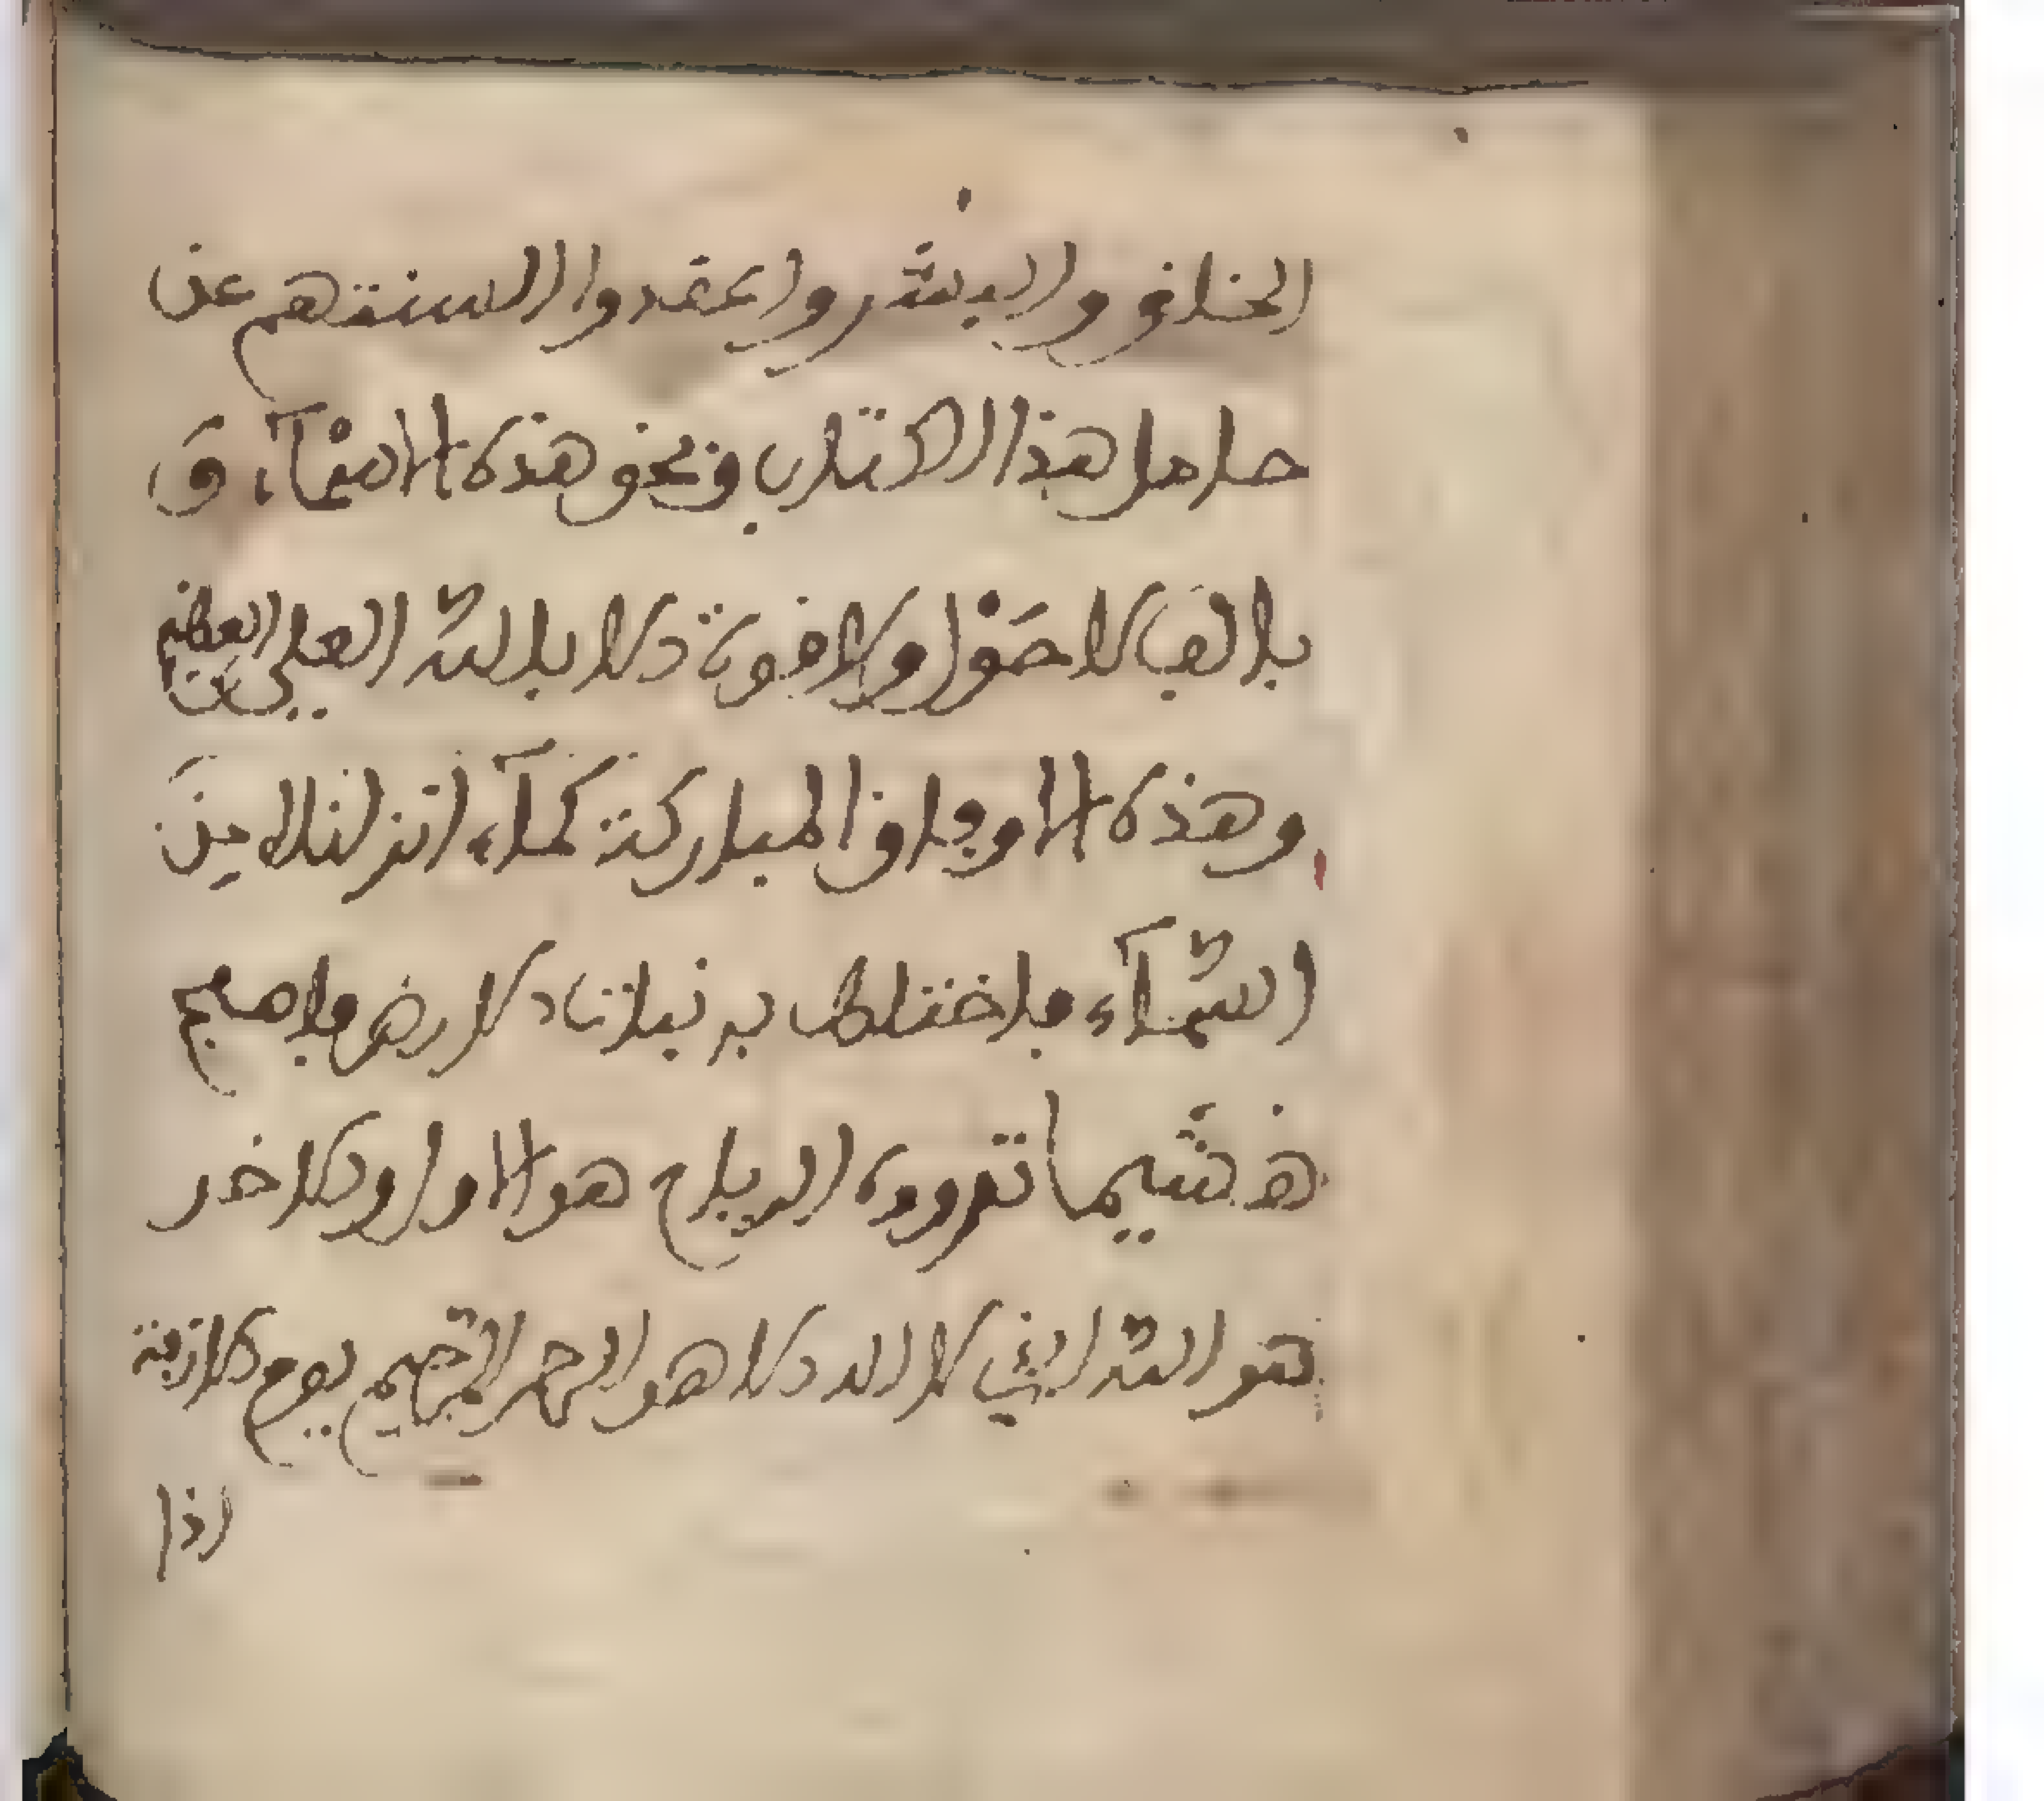 الخلق والبشر واعقدوا السنتهم عن
حامل هذا الكتاب وبحق هذه الاسمآء و
بالف لا حول ولا قوة الا بالله العلي العظيم
وهذه الاوفاق المباركة كمآء انزلناه من
السّمآء فاختلط به نبات الارض فاصبح
هشيما تذروه الرياح هو الاول والاخر
هو الله الذي لا اله الا هو الرحمن الرحيم يوم الازفة
اذا